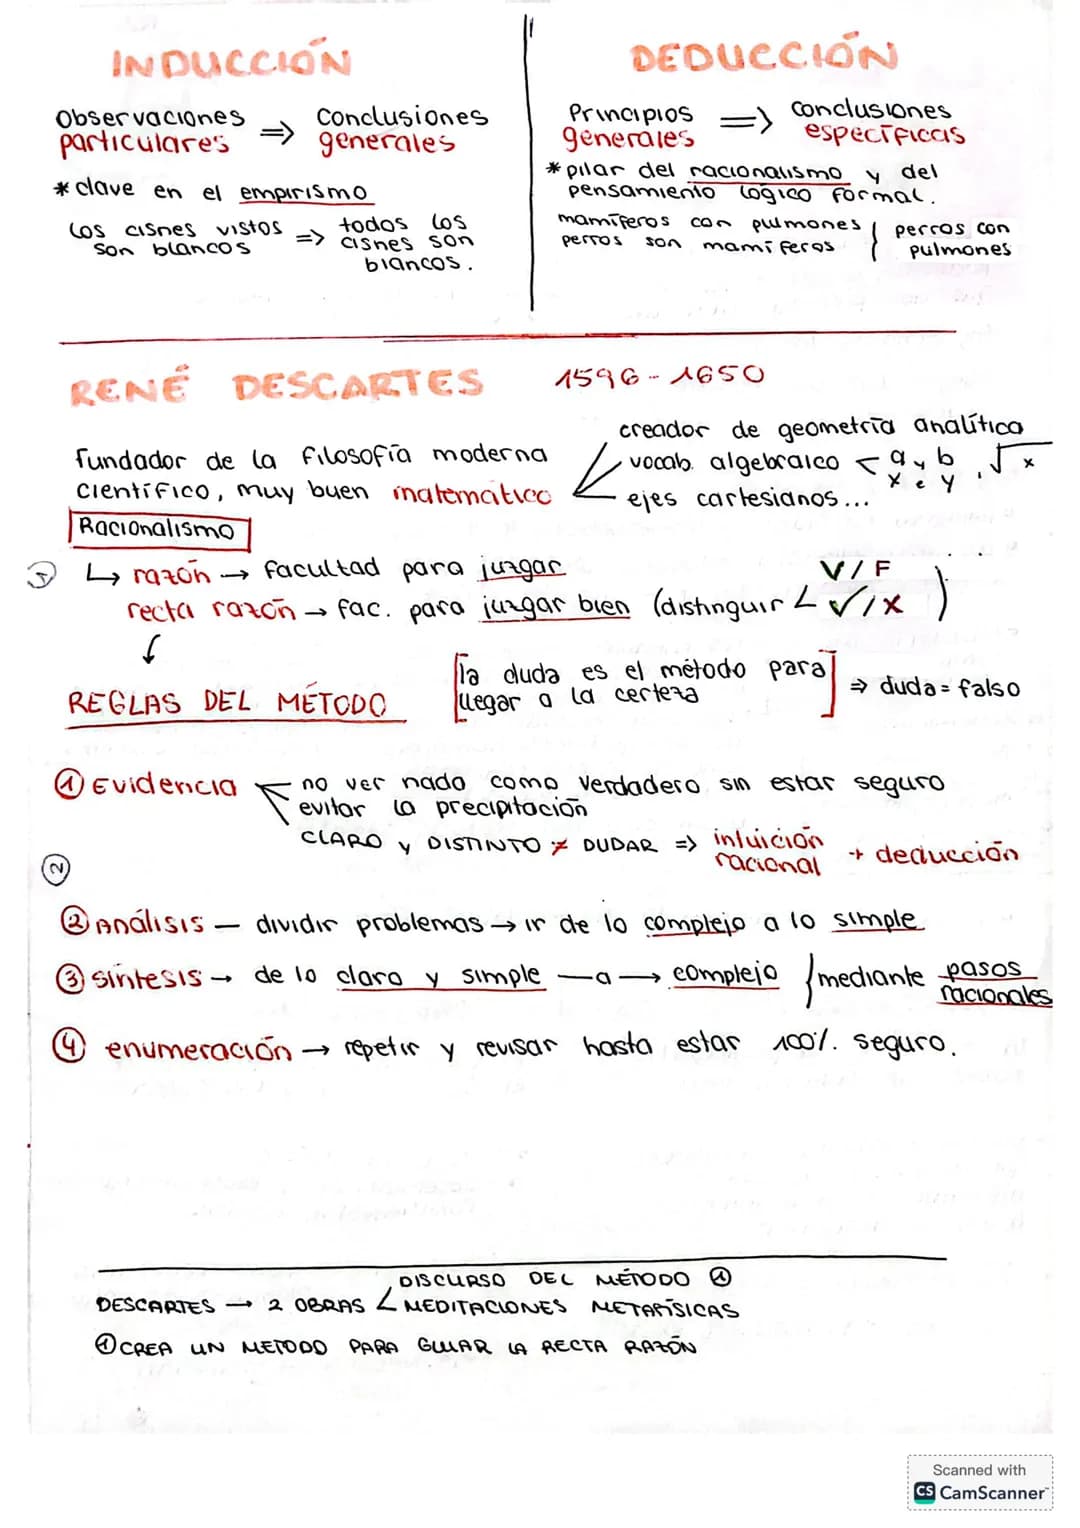 INDUCCIÓN
Observaciones => Conclusiones
particulares generales
* clave en el empirismo
Los cisnes vistos => todos los
son blancos cisnes son
blancos.
DEDUCCIÓN
Principios => conclusiones
generales específicas
* pilar del racionalismo y del
pensamiento lógico formal.
mamíferos con pulmones } perros con
perros son mamíferos pulmones
RENÉ DESCARTES 1596-1650
Fundador de la Filosofía moderna
Científico, muy buen matemático
creador de geometría analítica
vocab. algebraico < a y b, √x
x e y
ejes cartesianos...
Racionalismo
↳ razón → facultad para juzgar
recta razón → fac. para juzgar bien (distinguir V/F
✓/x)
REGLAS DEL MÉTODO
[la duda es el método para
llegar a la certeza] ⇒ duda = falso
① Evidencia no ver nada como verdadero sin estar seguro
evitar la precipitación
CLARO y DISTINTO ≠ DUDAR => intuición
racional + deducción
②
② Análisis — dividir problemas → ir de lo complejo a lo simple
③ Síntesis → de lo claro y simple —a→ complejo / mediante pasos
racionales
④ enumeración → repetir y revisar hasta estar 100%. seguro.
DISCURSO DEL MÉTODO ①
DESCARTES → 2 OBRAS < MEDITACIONES METAFÍSICAS
① CREA UN METODO PARA GUIAR LA RECTA RAZÓN
Scanned with
CS CamScanner